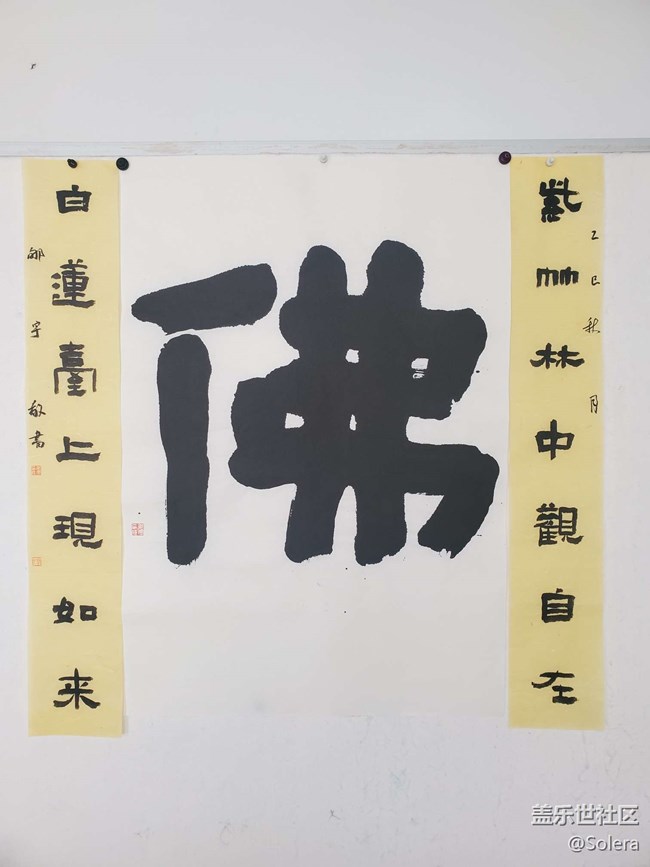 乙巳秋月
紫竹林中觀自在
佛
白蓮臺上現如来
敬書
盖乐世社区
@Solera